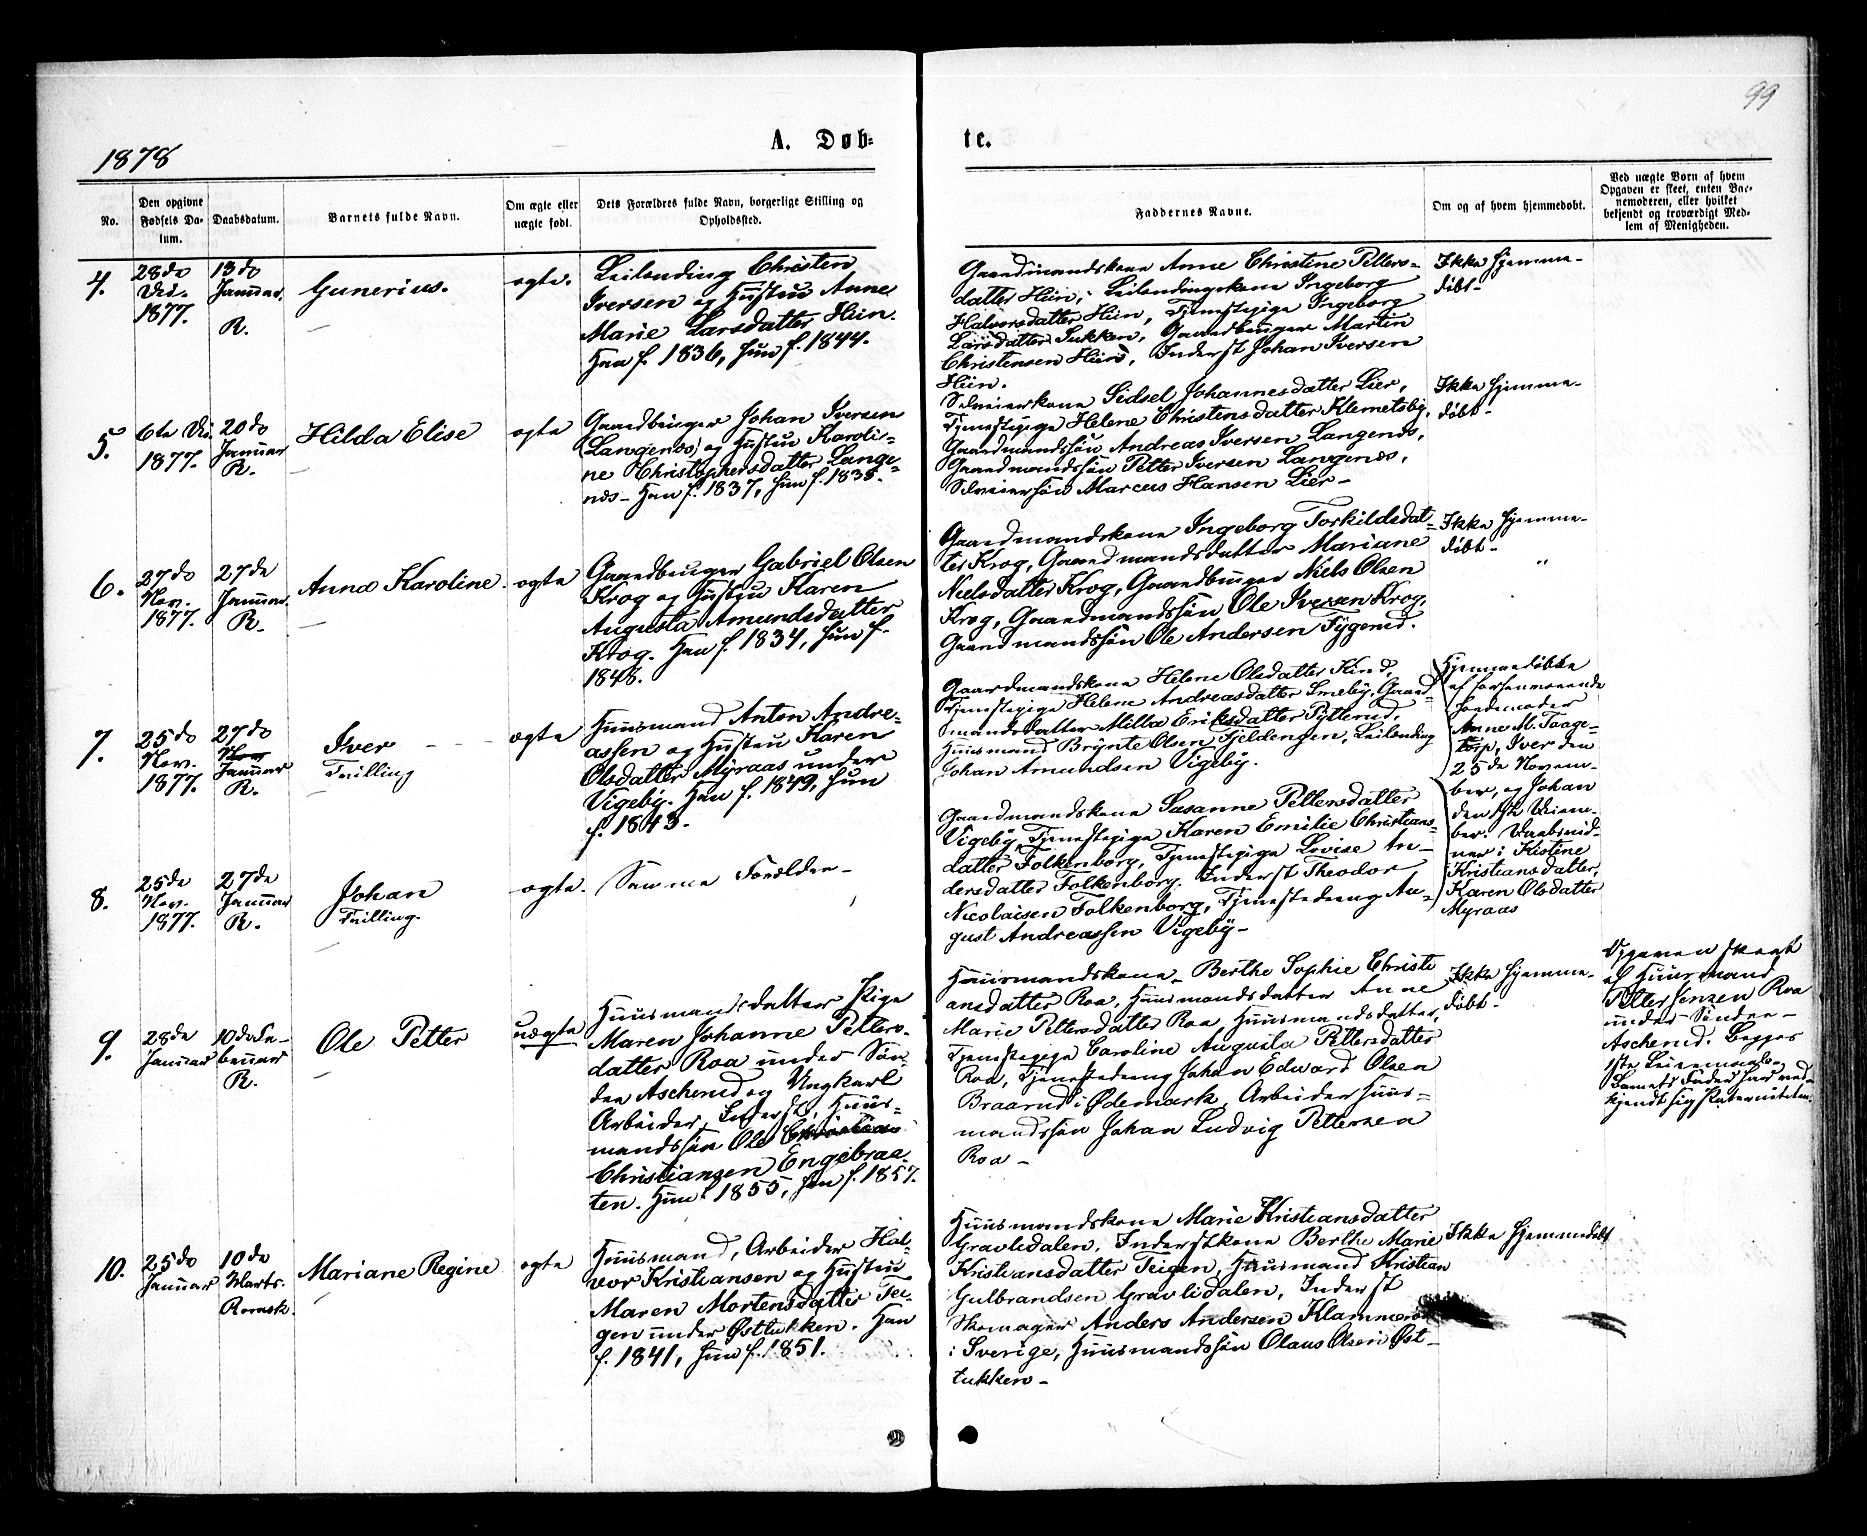 99
1878
A. Døb-
te.
No.
Den opgivne
Fødsels Da-
tum.
Daabsdatum.
Barnets fulde Navn.
Om ægte eller
uægte født.
Dets Forældres fulde Navn, borgerlige Stilling og
Opholdssted.
Faddernes Navne.
Om og af hvem hjemmedøbt.
Ved uægte Børn af hvem
Opgaven er skeet, enten Bar-
nemoderen, eller hvilket
bekjendt og troværdigt Med-
lem af Menigheden.
4.
28do
Dec.
1877.
13do
Januar.
R.
Gunerius.
ægte.
Leilending Christen
Iversen og Hustru Anne
Marie Larsdatter Hein.
Han f. 1836, hun f. 1844.
Gaardmandskone Anne Christine Petters-
datter Hein, Leilendingskone Ingeborg
Halvorsdatter Hein, Tjenestepige Ingeborg
Larsdatter Sukken, Gaardbruger Martin
Christensen Hein, Inderst Johan Iversen
Hein.
Ikke hjemme-
døbt-
5.
6te Dec
1877.
20do
Januar
R.
Hilda Elise
ægte
Gaardbruger Johan Iversen
Langenæs og Hustru Karoli-
ne Christophersdatter Lange-
næs- Han f. 1837, hun f. 1838.
Selveierkone Sidsel Johannesdatter Lier,
Tjenestepige Helene Christensdatter Klemetsby,
Gaardmandssøn Andreas Iversen Langenæs,
Gaardmandssøn Petter Iversen Langenæs,
Selveiersøn Marcus Hansen Lier-
Ikke hjemme-
døbt-
6.
27do
Nov.
1877.
27de
Januar.
R.
Anna Karoline
ægte
Gaardbruger Gabriel Olsen
Krog og Hustru Karen
Augusta Amundsdatter
Krog. Han f. 1834, hun f.
1848.
Gaardmandskone Ingeborg Torkildsdat-
ter Krog, Gaardmandsdatter Mariane
Nielsdatter Krog, Gaardbruger Niels Olsen
Krog, Gaardmandssøn Ole Iversen Krog,
Gaardmandssøn Ole Andersen Tygerud.
Ikke hjemme-
døbt-
"
7.
25do
Nov.
1877.
27do
Nov
Januar
R.
Iver
Tvilling
ægte
Huusmand Anton Andre-
assen og Hustru Karen
Olsdatter Myraas under
Vigeby. Han f. 1849, hun
f. 1843.
Gaardmandskone Helene Olsdatter Kind,
Tjenestepige Helene Andreasdatter Smeby, Gaard-
mandsdatter Milla Eriksdatter Tytterud,
Huusmand Brynte Olsen Tjeldengen, Leilending
Johan Amundsen Vigeby.
Hjemmedøbte
af
Jordemoder
Anne M. Taage-
torp, Iver den
25de Novem-
ber, og Johan
den 1ste Decem-
ber. Daabsvid-
ner: Kistine
Kristiansdatter,
Karen Olsdatter
Myraas
8.
25de
Nov.
1877.
27de
Januar
R.
Johan
Tvilling.
ægte.
Samme Forældre-
Gaardmandskone Susanne Pettersdatter
Vigeby, Tjenestepige Karen Emilie Christians-
datter Folkenborg, Tjenestepige Lovise An-
dersdatter Folkenborg. Inderst Theodor
Nicolaisen Folkenborg, Tjenestedreng Au-
gust Andreassen Vigeby-
9.
28de
Januar
10de Fe-
bruar
R.
Ole Petter
uægte
Huusmandsdatter Pige
Maren Johanne Petters-
datter Roa under Søn-
dre Ascherud og Ungkarl
Arbeider, Inderst, Huus-
mandssøn Ole Christian
Christiansen Engebraa-
ten. Hun f. 1855, han f. 1857.
Huusmandskone Berthe Sophie Christi
ansdatter Roa, Huusmandsdatter Anne
Marie Pettersdatter Roa Huusmandsdatter,
Tjenestepige Caroline Augusta Pettersdatter
Roa, Tjenestedreng Johan Edward Olsen
Braarud i Ødemark, Arbeider Huus-
mandssøn Johan Ludvig Pettersen
Roa-
Ikke hjemme-
døbt-
Opgaven skeet
af Huusmand
Petter Jensen Roa
under Søndre-
Ascherud. Begges
1ste Leiermaal-
Barnets Fader har ved-
kjendt sig Paterniteten.
10.
25do
Januar
10do
Marts.
Rømsk.
Mariane Regine
ægte
Huusmand, Arbeider Hal-
vor Kristiansen og Hustru
Maren Mortensdatter Tei-
gen under Østtukken. Han
f. 1841, hun f. 1851.
Huusmandskone Marie Kristiansdatter
Gravlidalen. Inderstkone Berthe Marie
Kristiansdatter Teigen, Huusmand Kristian
Gulbrandsen Gravlidalen, Inderst
Skomager Anders Andersen
i Sverige, Huusmandssøn Olaus Olsen Øst-
tukken-
Ikke hjemmedøbt